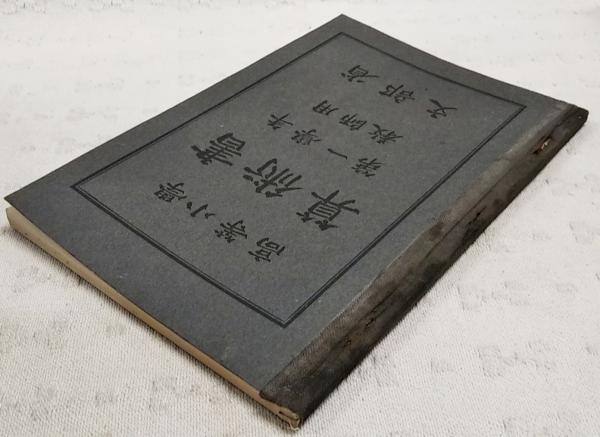 高等小學
算術書
第一學年
教師用
文部省